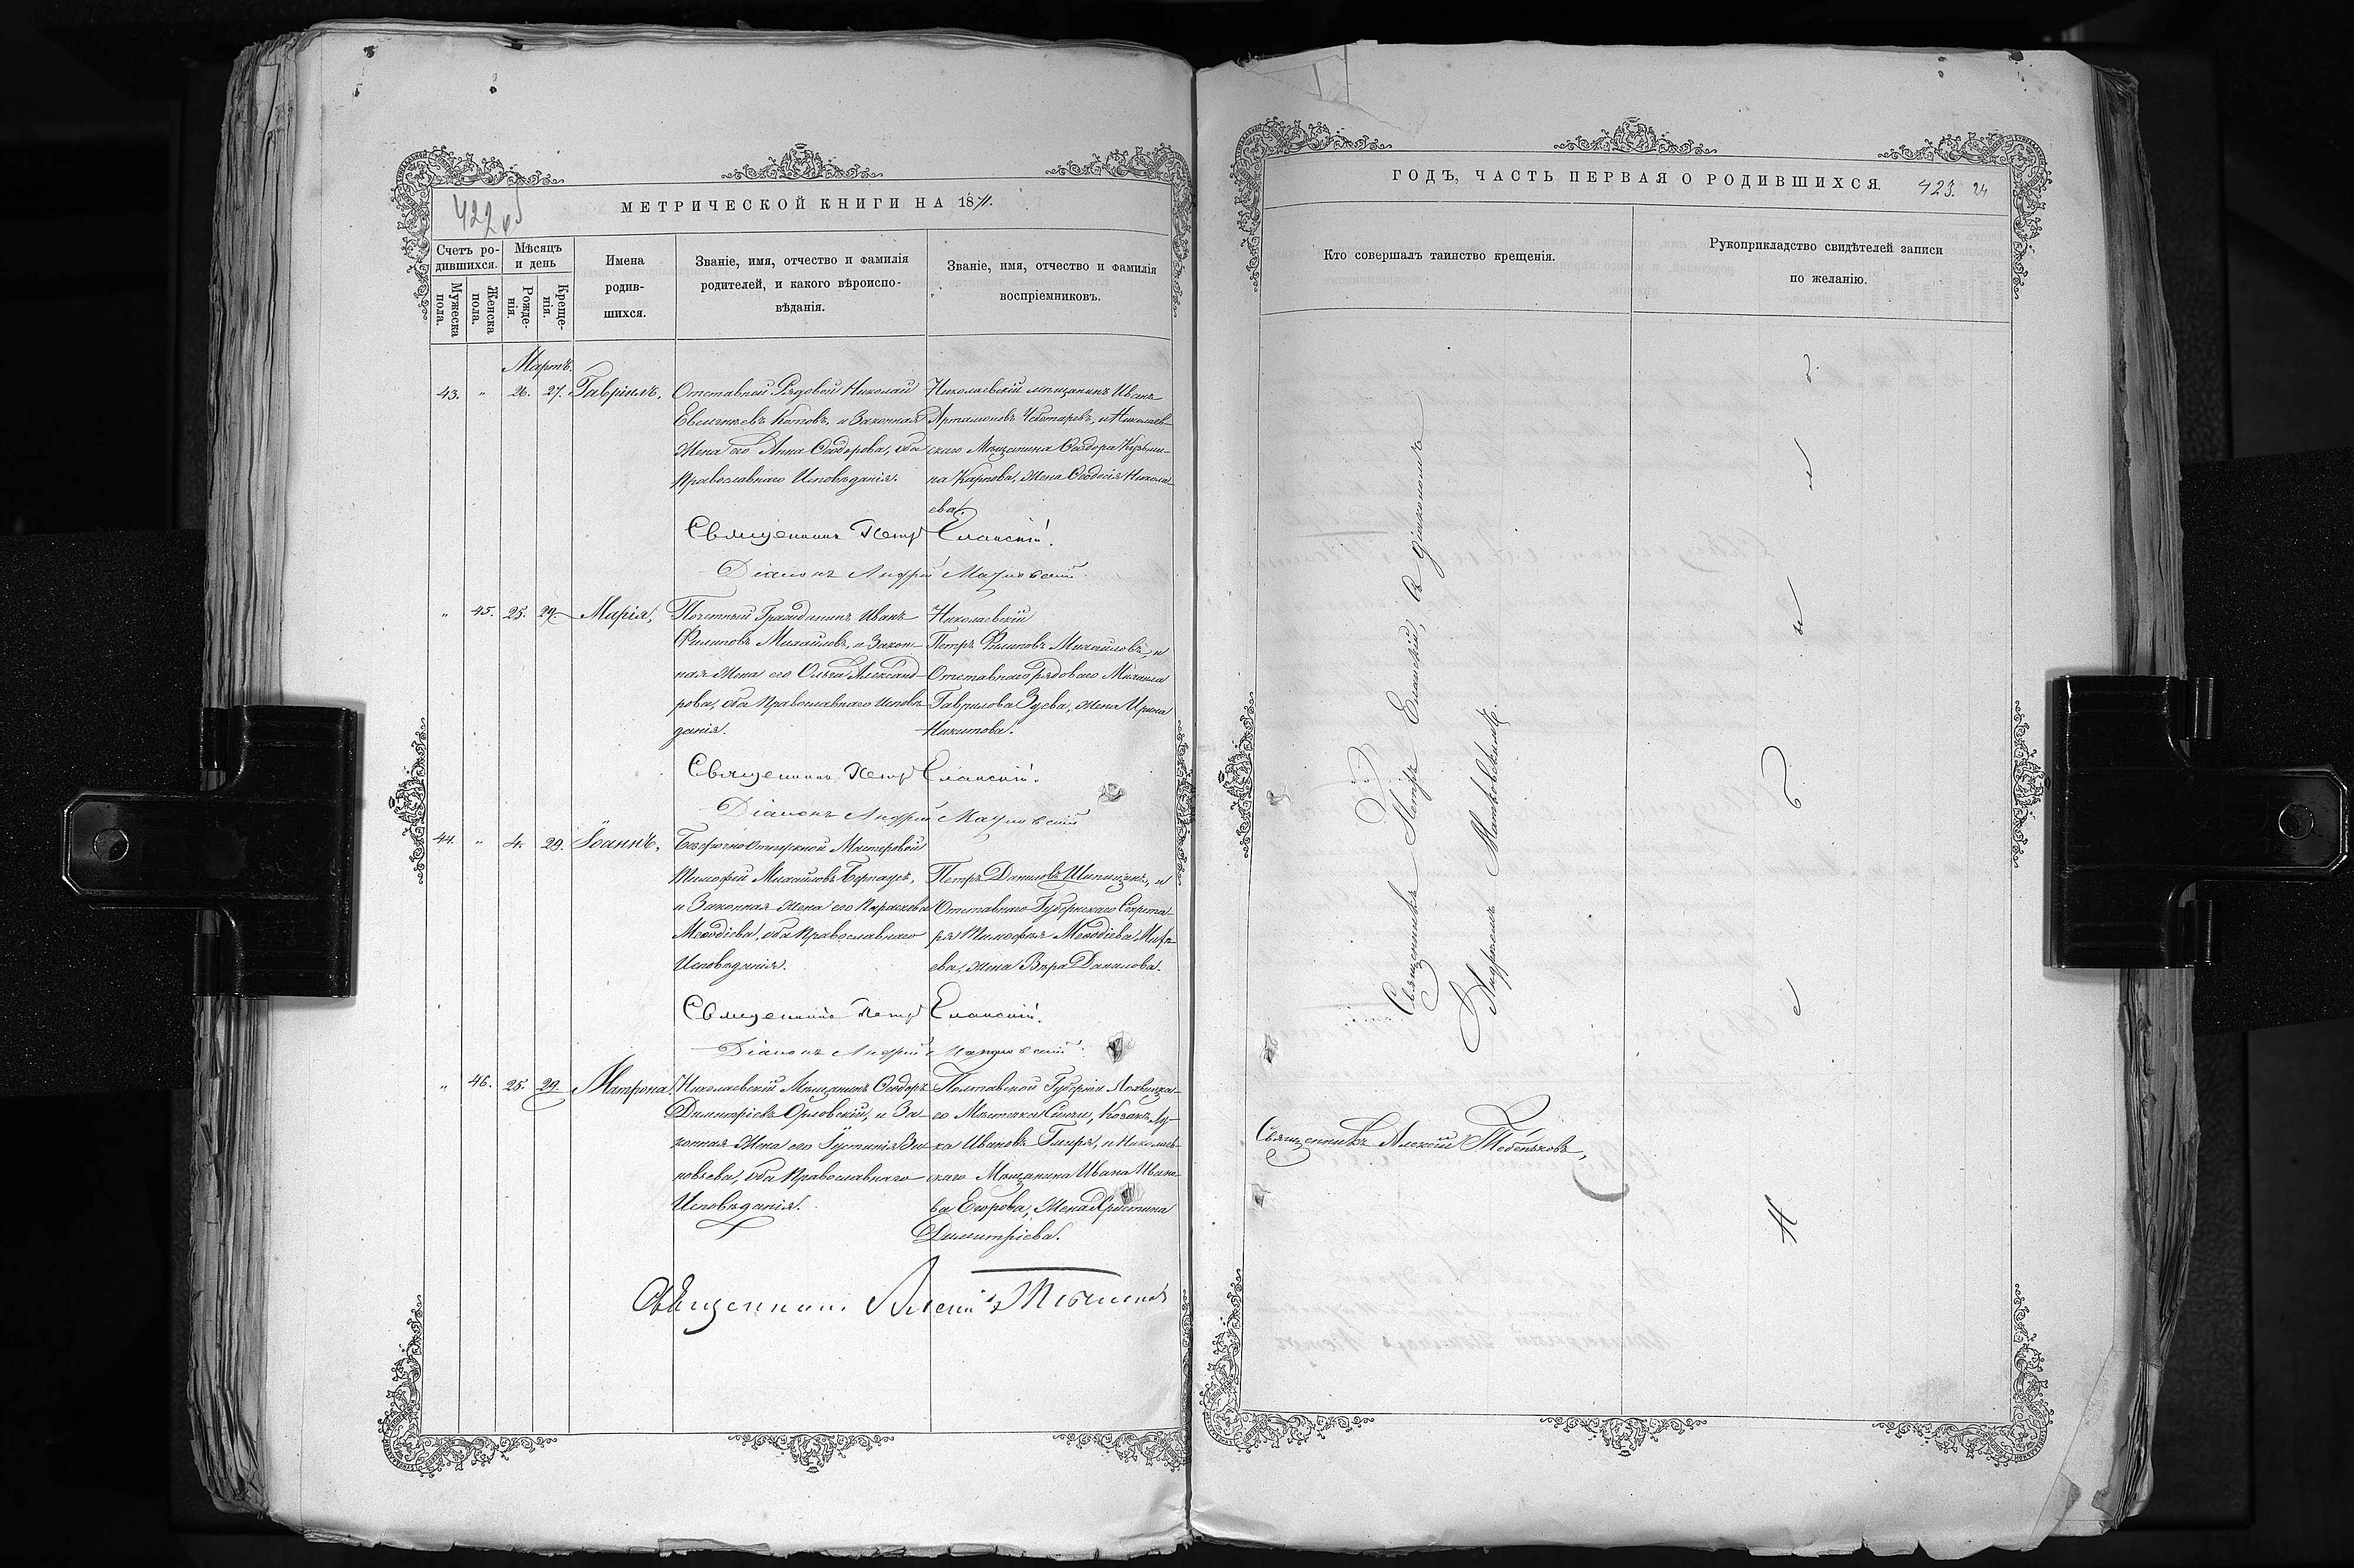 МЕТРИЧЕСКОЙ КНИГИ НА 1871.
422 об
Счетъ ро-
дившихся.
Мѣсяцъ
и день
Мужеска
пола.
Женска
пола.
Рожде-
нія.
Креще-
нія.
Имена
родив-
шихся.
Званіе, имя, отчество и фамилія
родителей, и какого вѣроиспо-
вѣданія.
Званіе, имя, отчество и фамилія
воспріемниковъ.
Мартъ.
43. " 26. 27. Гавріилъ,
Отставной Рядовой Николай
Котовъ, и Законная
Жена его Анна Ѳеодорова, оба
Православнаго Исповѣданія.
Николаевскій мѣщанинъ Иванъ
Артамоновъ Чеботаревъ, и Николаев-
скаго Мѣщанина Ѳеодора Кузьми-
на Карпова, Жена Ѳеодосія Никола-
ева.
Священникъ Петръ Еланскій.
Діаконъ Андрей
" 45. 25. 29. Марія,
Почетный Гражданинъ Иванъ
Филиповъ Михайловъ, и Закон-
ная Жена его Ольга Александ-
рова, оба Православнаго Исповѣ-
данія.
Николаевскій
Петръ Филиповъ Михайловъ, и
Отставнаго рядоваго Михаила
Гаврилова Зуева, жена Ирина
Никитова.
Священникъ Петръ Еланскій.
Діаконъ Андрей
44. " 4. 29. Іоаннъ,
Безсрочно Отпускной Мастеровой
Тимофей Михайловъ
и Законная Жена его Параскева
Меѳодіева, оба Православнаго
Исповѣданія.
Петръ Даниловъ Шипицинъ, и
Отставнаго Губернскаго Секрета-
ря Тимофея Меѳодіева
ева, жена Вѣра Данилова.
Священникъ Петръ Еланскій.
Діаконъ Андрей
" 46. 25. 29. Матрона,
Николаевскій Мѣщанинъ Ѳеодоръ
Димитріевъ Орловскій, и За-
конная Жена его Іустинія Зи-
новьева, оба Православнаго
Исповѣданія.
Полтавской Губерніи
го Мѣстечка Козакъ Лу-
ка Ивановъ и Николаев-
скаго Мѣщанина Ивана Ивано-
ва Егорова, Жена Христина
Димитріева.
Священникъ Алексій
ГОДЪ, ЧАСТЬ ПЕРВАЯ О РОДИВШИХСЯ.
423. 24
Кто совершалъ таинство крещенія.
Рукоприкладство свидѣтелей записи
по желанію.
Священникъ Петръ Еланскій, съ діакономъ
Андреемъ
Священникъ Алексій Тебеньковъ,